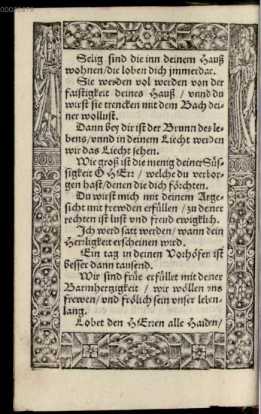 Selig sind die inn deinem Hauß
wohnen/die loben dich jmmerdar.
Sie werden vol werden von der
faistigkeit deines Hauß / vnnd du
wirst sie trencken mit dem Bach dei-
ner wollust.
Dann bey dir ist der Brunn des le-
bens/vnnd in deinem Liecht werden
wir das Liecht sehen.
Wie groß ist die menig deiner Süs-
sigkeit O HErr / welche du verbor-
gen hast/denen die dich förchten.
Du wirst mich mit deinem Ange-
sicht mit frewden erfüllen / zu dener
rechten ist lust vnd freud ewigklich.
Jch werd satt werden/wann dein
Herligkeit erscheinen wird.
Ein tag in deinen Vorhöfen ist
besser dann tausend.
Wir sind früe erfüllet mit dener
Barmhertzigkeit / wir wöllen vns
frewen/vnd frölich sein vnser leben-
lang.
Lobet den HErren alle Haiden/